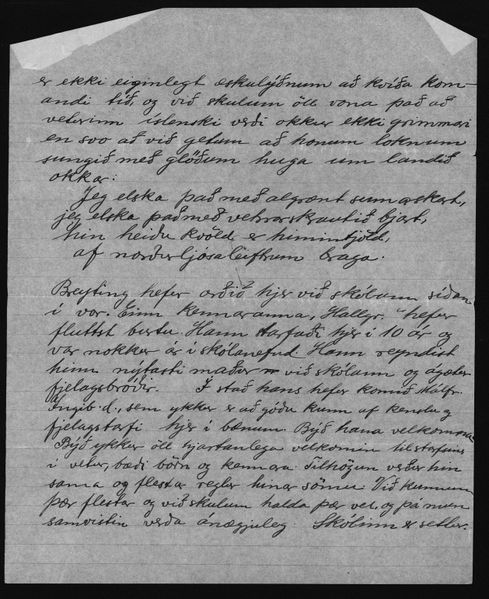 er ekki eiginlegt æskulýðnum að kvíða kom-
andi tíð, og við skulum öll vona það að
veturinn íslenski verði okkur ekki grimmari
en svo að við getum að honum loknum
sungið með glöðum huga um landið
okkar:
Jeg elska það með algrænt sumarskart,
jeg elska það með vetrarskrautið bjart,
hin heiðu kvöld er himintjöld,
af norðurljósaleiftrum braga.
Breyting hefur orðið hjer við skólann síðan
í vor. Einn kennaranna, Hallgr. hefur
fluttst burtu. Hann starfaði hjer í 10 ár og
var nokkur ár í skólanefnd. Hann reyndist
hinn nýtasti maður við skólann og ágætur
fjelagsbróðir. Í stað hans hefur komið Hálfr.
Ingib.d., sem ykkur er að góðu kunn af kenslu og
fjelagsstarfi hjer í bænum. Býð hana velkomna.
Býð ykkur öll hjartanlega velkomin til starfsins
í vetur, bæði börn og kennara. Tilhögun verður hin
sama og flestar reglur hinar sömu. Við kunnum
þær flestar og við skulum halda þær vel, og þá mun
samvistin verða ánægjuleg. Skólinn er settur.